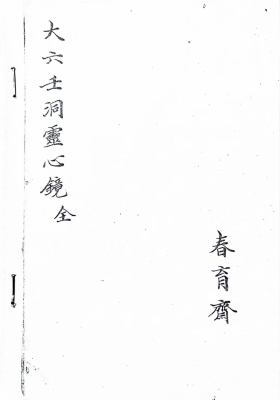 春育齋
大六壬洞靈心鏡全